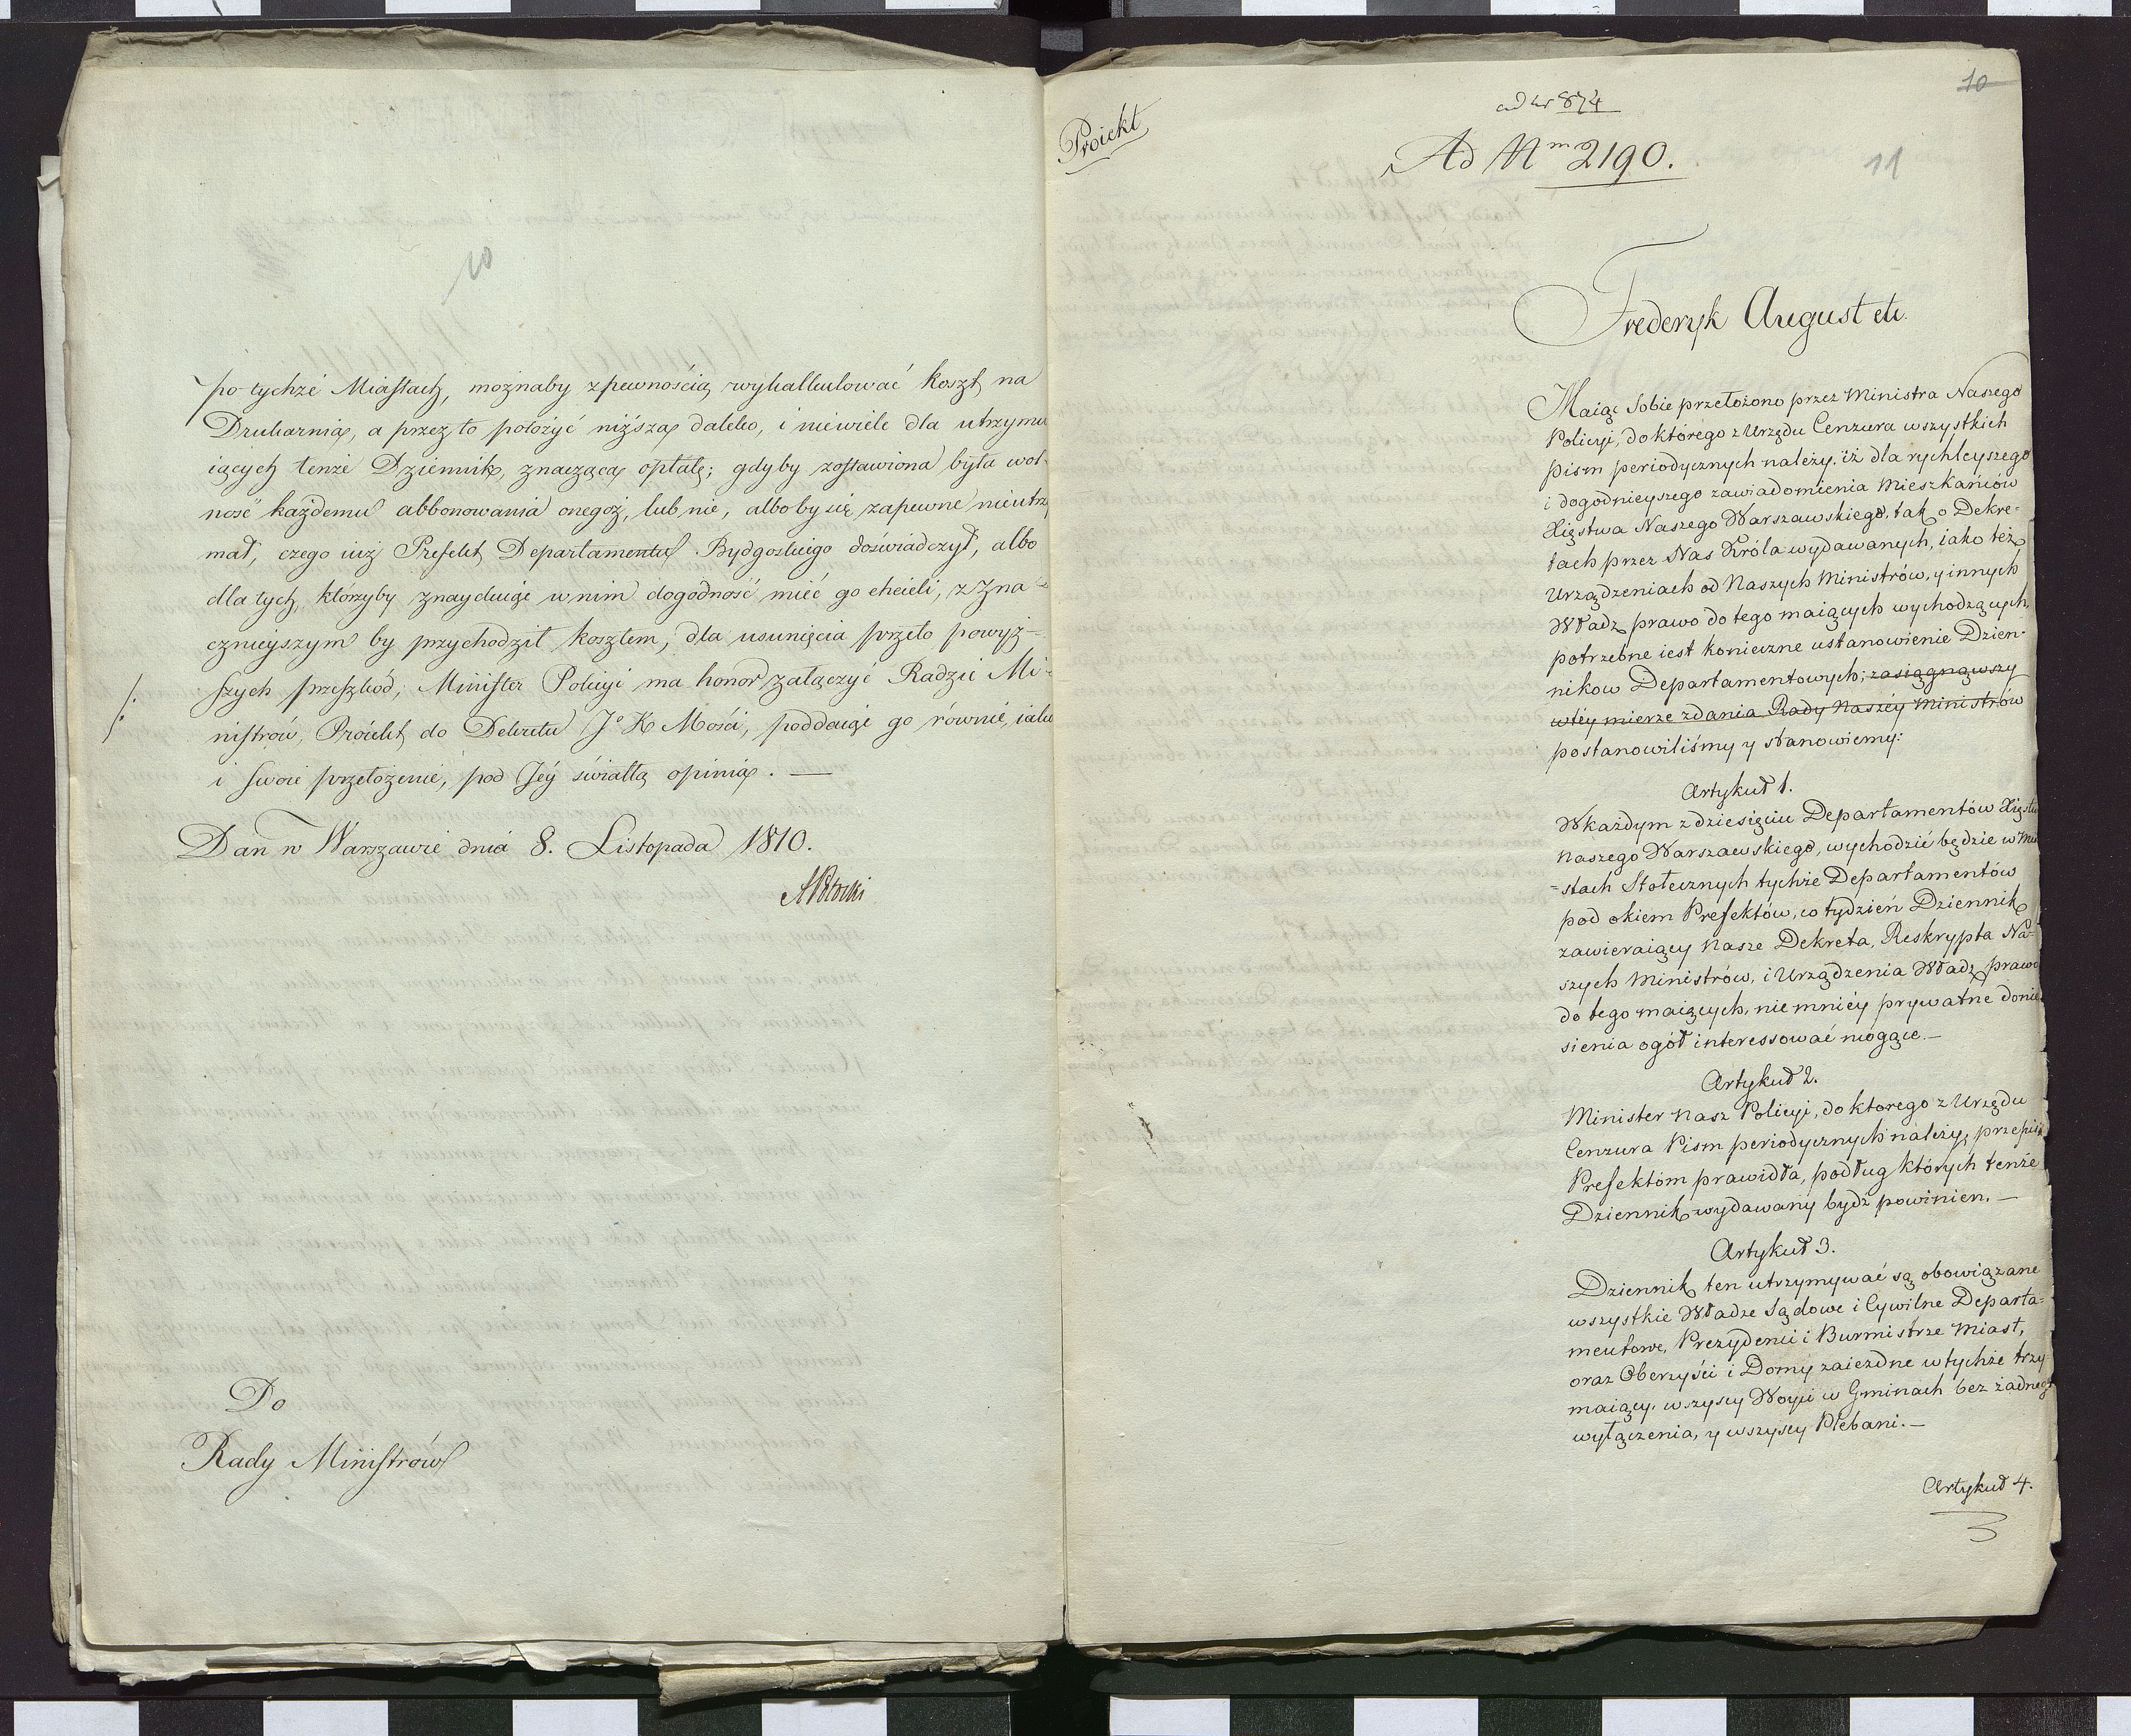 10
po tychże Miastach, możnaby z pewnością wykalkulować koszt na
Drukarnią, a przez to położyć niższą daleko, i niewiele dla utrzymu
iących tenże Dziennik, znaczącą opłatę; gdyby zostawiona była wol-
ność każdemu abbonowania onegoż, lub nie, alboby się zapewne nieutrzy
mał, czego iuż Prefekt Departamentu Bydgoskiego doświadczył, albo
dla tych, którzyby znayduiąc w nim dogodność mieć go chcieli, z zna-
cznieyszym by przychodził kosztem, dla usunięcia przeto powyż-
szych przeszkod, Minister Policyi ma honor załączyć Radzie Mi-
nistrów, Proiekt do Dekretu J. K Mości, poddaiąc go równie, iako
i swoie przełożenie, pod Jéy światłą opinią. —
Dan w Warszawie dnia 8. Listopada 1810.
APotocki
Do
Rady Ministrów
10
ad nr 874
Proiekt
Ad Nm 2190.
11
Frederyk August etc.
Maiąc Sobie przełożono przez Ministra Naszego
Policyi, do którego z Urzędu Cenzura wszystkich
pism periodycznych należy, iż dla rychleyszego
i dogodnieyszego zawiadomienia Mieszkańców
Xięstwa Naszego Warszawskiego, tak o Dekre-
tach przez Nas Króla wydawanych, iako też
Urządzeniach od Naszych Ministrów, y innych
Władz prawo do tego maiących wychodzących,
potrzebne iest konieczne ustanowienie Dzien-
nikow Departamentowych; zasiągnąwszy
wtéy mierze zdania Rady Naszéy Ministrów
postanowiliśmy y stanowiemy:
Artykuł 1.
W każdym z dziesięciu Departamentów Xięstw
Naszego Warszawskiego, wychodzić będzie w Mia
-stach Stołecznych tychże Departamentów
pod okiem Prefektów, co tydzień Dziennik
zawieraiący Nasze Dekreta, Reskrypta Na-
szych Ministrów, i Urządzenia Władz prawo
do tego maiących, niemniéy prywatne donie
sienia ogół interessować mogące.—
Artykuł 2.
Minister Nasz Policyi, do ktorego z Urzędu
Cenzura Pism periodycznych należy, przepis
Prefektom prawidła, podług których tenże
Dziennik wydawany bydź powinien.—
Artykuł 3.
Dziennik ten utrzymywać są obowiązane
wszystkie Władze Sądowe i Cywilne Departa-
mentowe, Prezydenci i Burmistrze Miast,
oraz Oberzyści i Domy zaiezdne w tychże trzy-
maiący, wszyscy Woyci w Gminach bez żadnego
wyłączenia, y wszyscy Plebani.—
Artykuł 4.